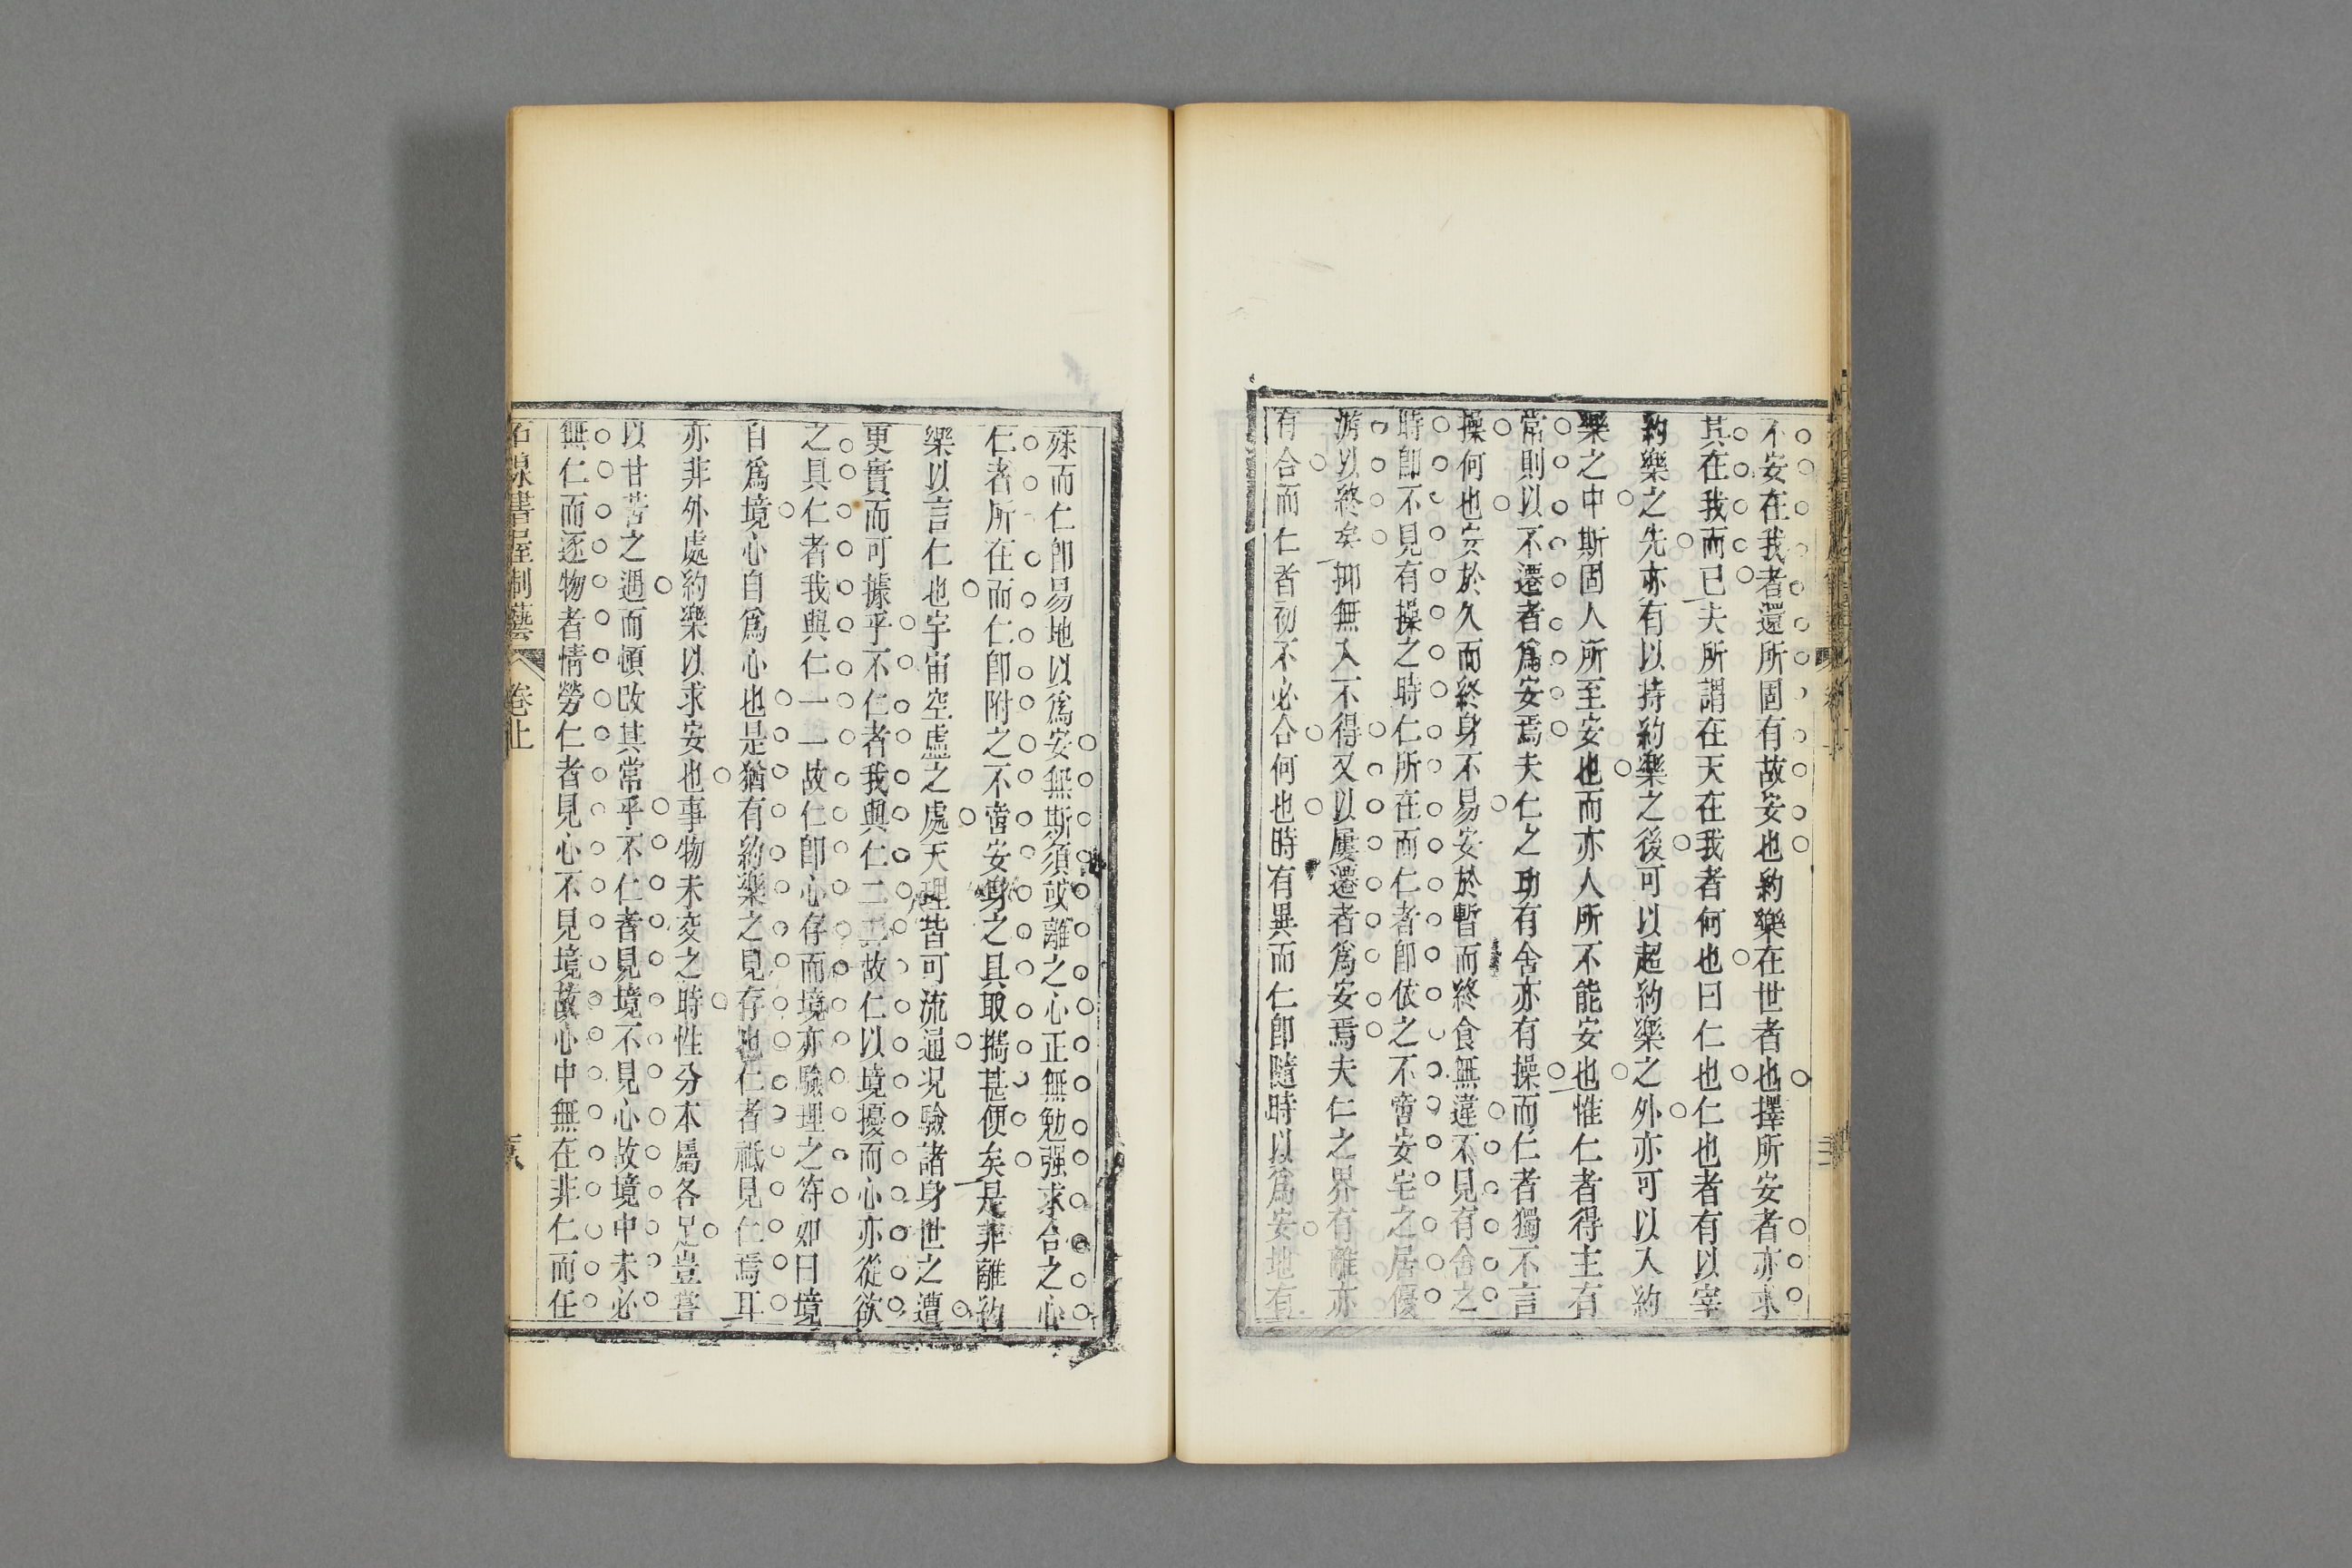 不安在我者還所固有故安也約樂在世者也擇所安者亦求
其在我而已夫所謂在天在我者何也曰仁也仁也者有以宰
約樂之先亦有以持約樂之後可以超約樂之外亦可以入約
樂之中斯固人所至安也而亦人所不能安也惟仁者得主有
常則以不遷者爲安焉夫仁之功有舍亦有操而仁者獨不言
操何也安於久而終身不易安於暫而終食無違不見有舍之
時卽不見有操之時仁所在而仁者卽依之不啻安宅之居優
游以終矣抑無入不得又以屢遷者爲安焉夫仁之界有離亦
有合而仁者初不必合何也時有異而仁卽隨時以爲安地有
殊而仁卽易地以爲安無斯須或離之心正無勉强求合之心
仁者所在而仁卽附之不啻安身之具取攜甚便矣是非離約
樂以言仁也宇宙空虛之處天理皆可流通况驗諸身世之遭
更實而可據乎不仁者我與仁二二故仁以境擾而心亦從欲
之具仁者我與仁一一故仁卽心存而境亦驗理之符卽曰境
自爲境心自爲心也是猶有約樂之見存也仁者祗見仁焉耳
亦非外處約樂以求安也事物未交之時性分本屬各足豈嘗
以甘苦之遇而頓改其常乎不仁者見境不見心故境中未必
無仁而逐物者情勞仁者見心不見境故心中無在非仁而任
書屋制藝 卷上